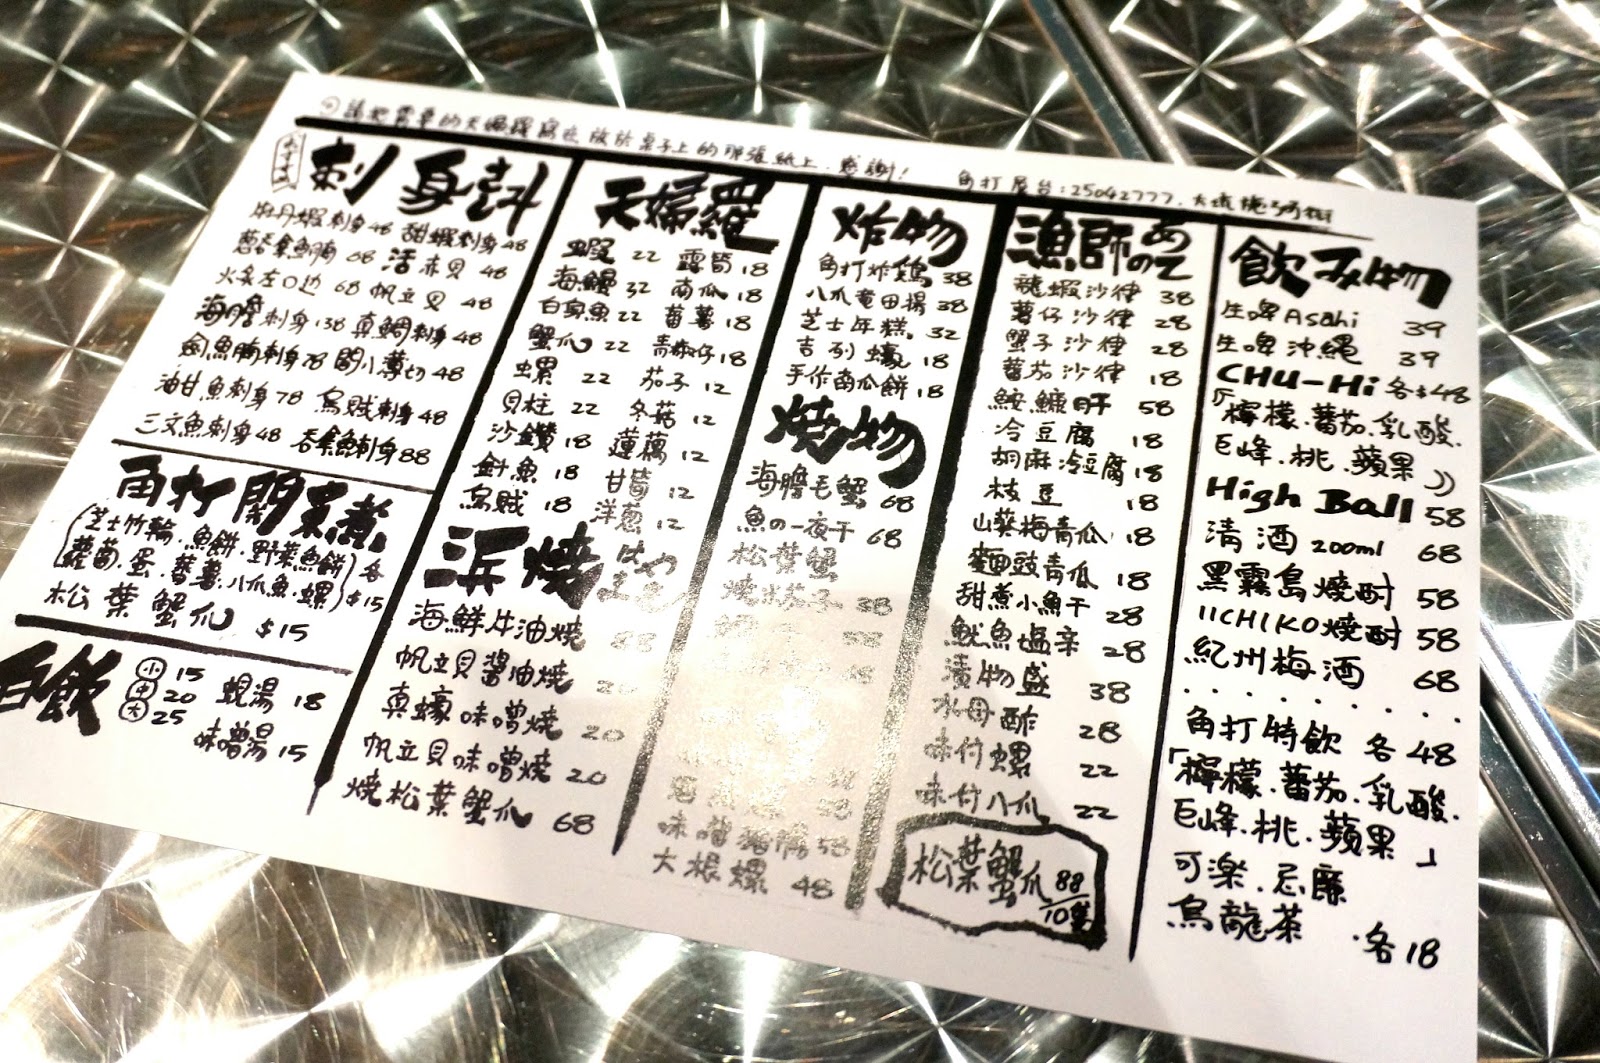 請把需要的天婦羅寫在放於桌子上的那張紙上,感謝!
角打屋台:25042777.大坑
刺身
牡丹蝦刺身48 甜蝦刺身48
葱吞拿魚腩68 活赤貝48
火炙左口边68 帆立貝48
海膽刺身138 真鯛刺身48
劍魚腩刺身78 関八薄切48
油甘魚刺身78 烏賊刺身48
三文魚刺身48 吞拿魚刺身88
角打関東煮
(芝士竹輪.魚餅.野菜魚餅 各
蘿蔔.蛋.蕃薯.八爪魚.螺) $15
松葉蟹爪 $15
白飯
小 15
中 20
大 25
蜆湯 18
味噌湯 15
天婦羅
蝦 22 露筍 18
海鰻 32 南瓜 18
白身魚 22 蕃薯 18
蟹爪 22 青椒仔 18
螺 22 茄子 12
貝柱 22 冬菇 12
沙鑽 18 蓮藕 12
針魚 18 甘筍 12
烏賊 18 洋葱 12
浜焼 はまやき
海鮮牛油焼 88
帆立貝醬油焼 20
真蠔味噌焼 20
帆立貝味噌焼 20
焼松葉蟹爪 68
炸物
角打炸鶏 38
八爪竜田揚 38
芝士年糕 32
吉列蠔 18
手作南瓜餅 18
焼物
海膽毛蟹 68
魚の一夜干 68
松葉蟹
焼米茄子 38
58
味噌豬腩 58
大根螺 48
漁師のあて
龍蝦沙律 38
薯仔沙律 28
蟹子沙律 28
蕃茄沙律 18
鮟鱇肝 58
冷豆腐 18
胡麻冷豆腐 18
枝豆 18
山葵梅青瓜 18
麵豉青瓜 18
甜煮小魚干 28
魷魚塩辛 28
漬物盛 38
水母酢 28
味付螺 22
味付八爪 22
松葉蟹爪 88/10隻
飲み物
生啤Asahi 39
生啤沖縄 39
CHU-Hi 各$48
「檸檬.蕃茄.乳酸.
巨峰.桃.蘋果」
High Ball 58
清酒 200ml 68
黑霧島焼酎 58
IICHIKO焼酎 58
紀州梅酒 68
角打特飲 各48
「檸檬.蕃茄.乳酸.
巨峰.桃.蘋果」
可楽.忌廉
烏龍茶 各18